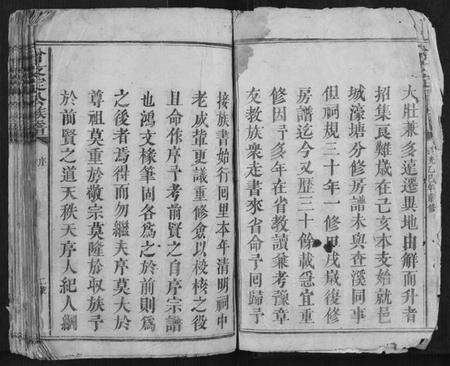 大壯兼多運遷異地由解而升者
招集良難歲在己亥本支始就邑
城濠塘分修房譜未與查溪同事
但祠規三十年一修甲戌歲後修
房譜迄今又歷三十餘載急宜重
修因予多年在省教讀兼考豫章
友教族衆走書來省命予回歸予
接族書始行回里本年清明祠中
老成輩更議重修僉以校核之役
且命作序予考前賢之自序宗譜
也鴻文椽筆固各爲之於前則爲
之後者焉得而勿繼夫序莫大於
尊祖莫重於敬宗莫隆於収族予
於前賢之道天秩天序人紀人綱
序